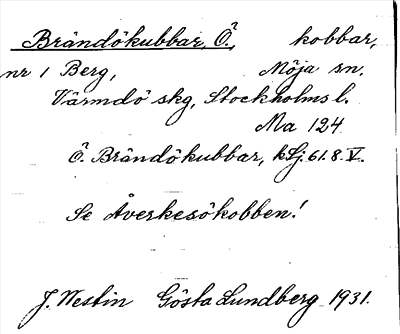 Brändökubbar, Ö., kobbar,
nr 1 Berg, Möja sn.
Värmdö skg, Stockholms l.
Ma 124
Ö. Brändökubbar, kSj. 61. 8. V.
Se Åverkesökobben!
J. Westin Gösta Lundberg 1931.